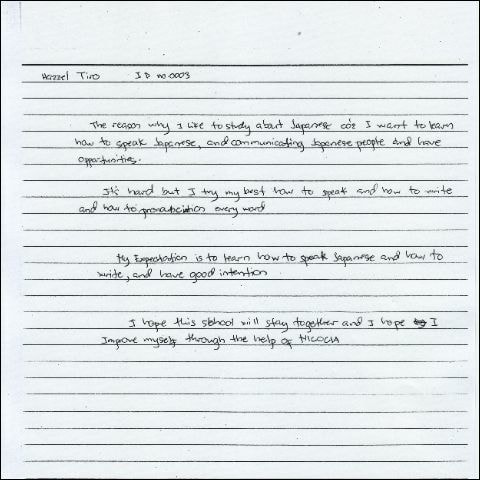 Hazzel Tiro ID no 0003
The reason why I like to study about Japanese coz I want to learn
how to speak Japanese, and communicating Japanese people and have
opportunities.
It's hard but I try my best how to speak and how to write
and how to pronunciation every word
My Expectation is to learn how to speak Japanese and how to
write, and have good intention
I hope this school will stay together and I hope I
Improve myself through the help of NICOCIA